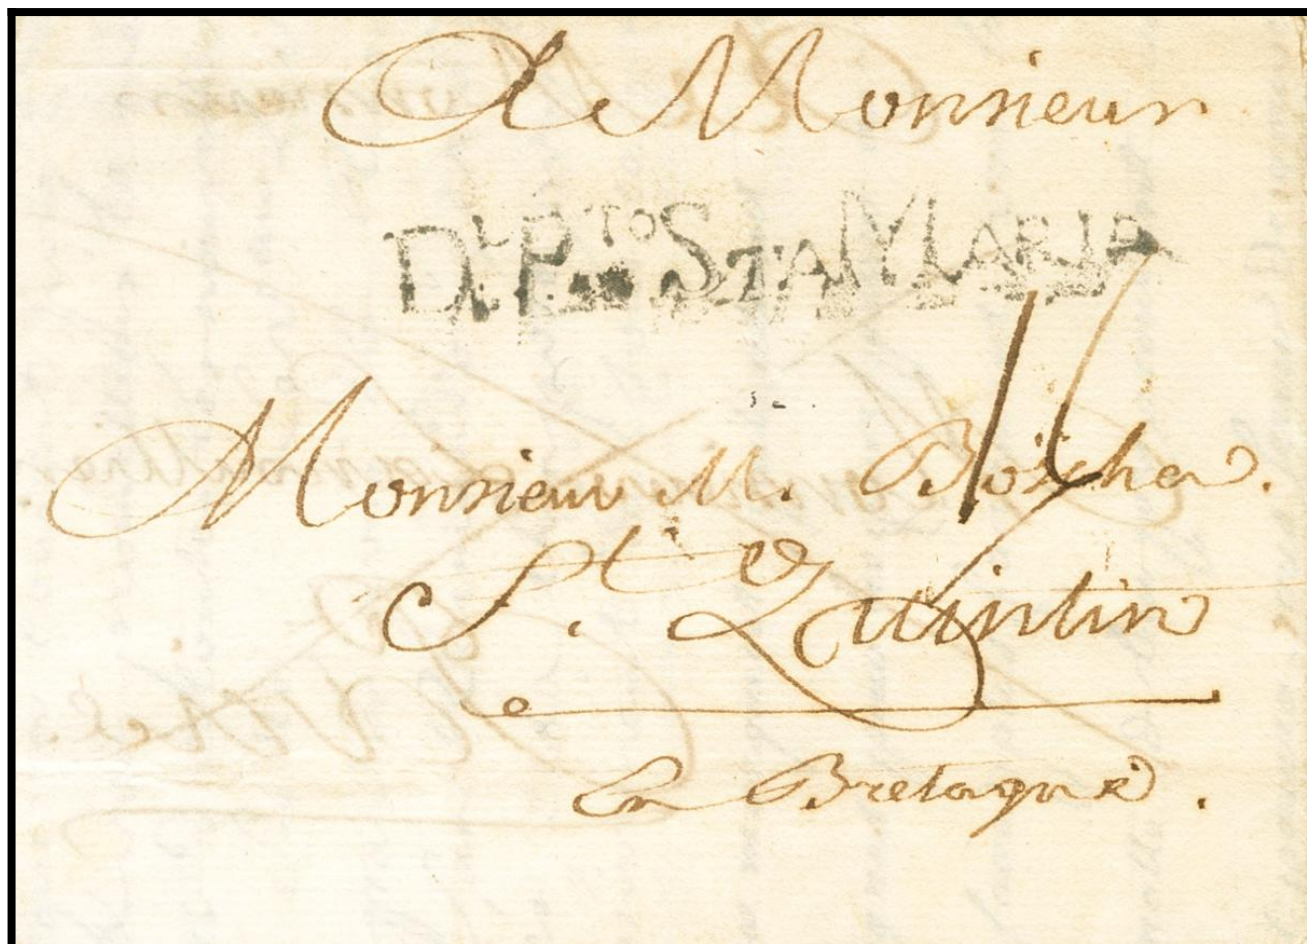 A Monsieur
DLPTO STA MARIA
Monsieur M. Boscher.
St. Quintin
en Bretagne.